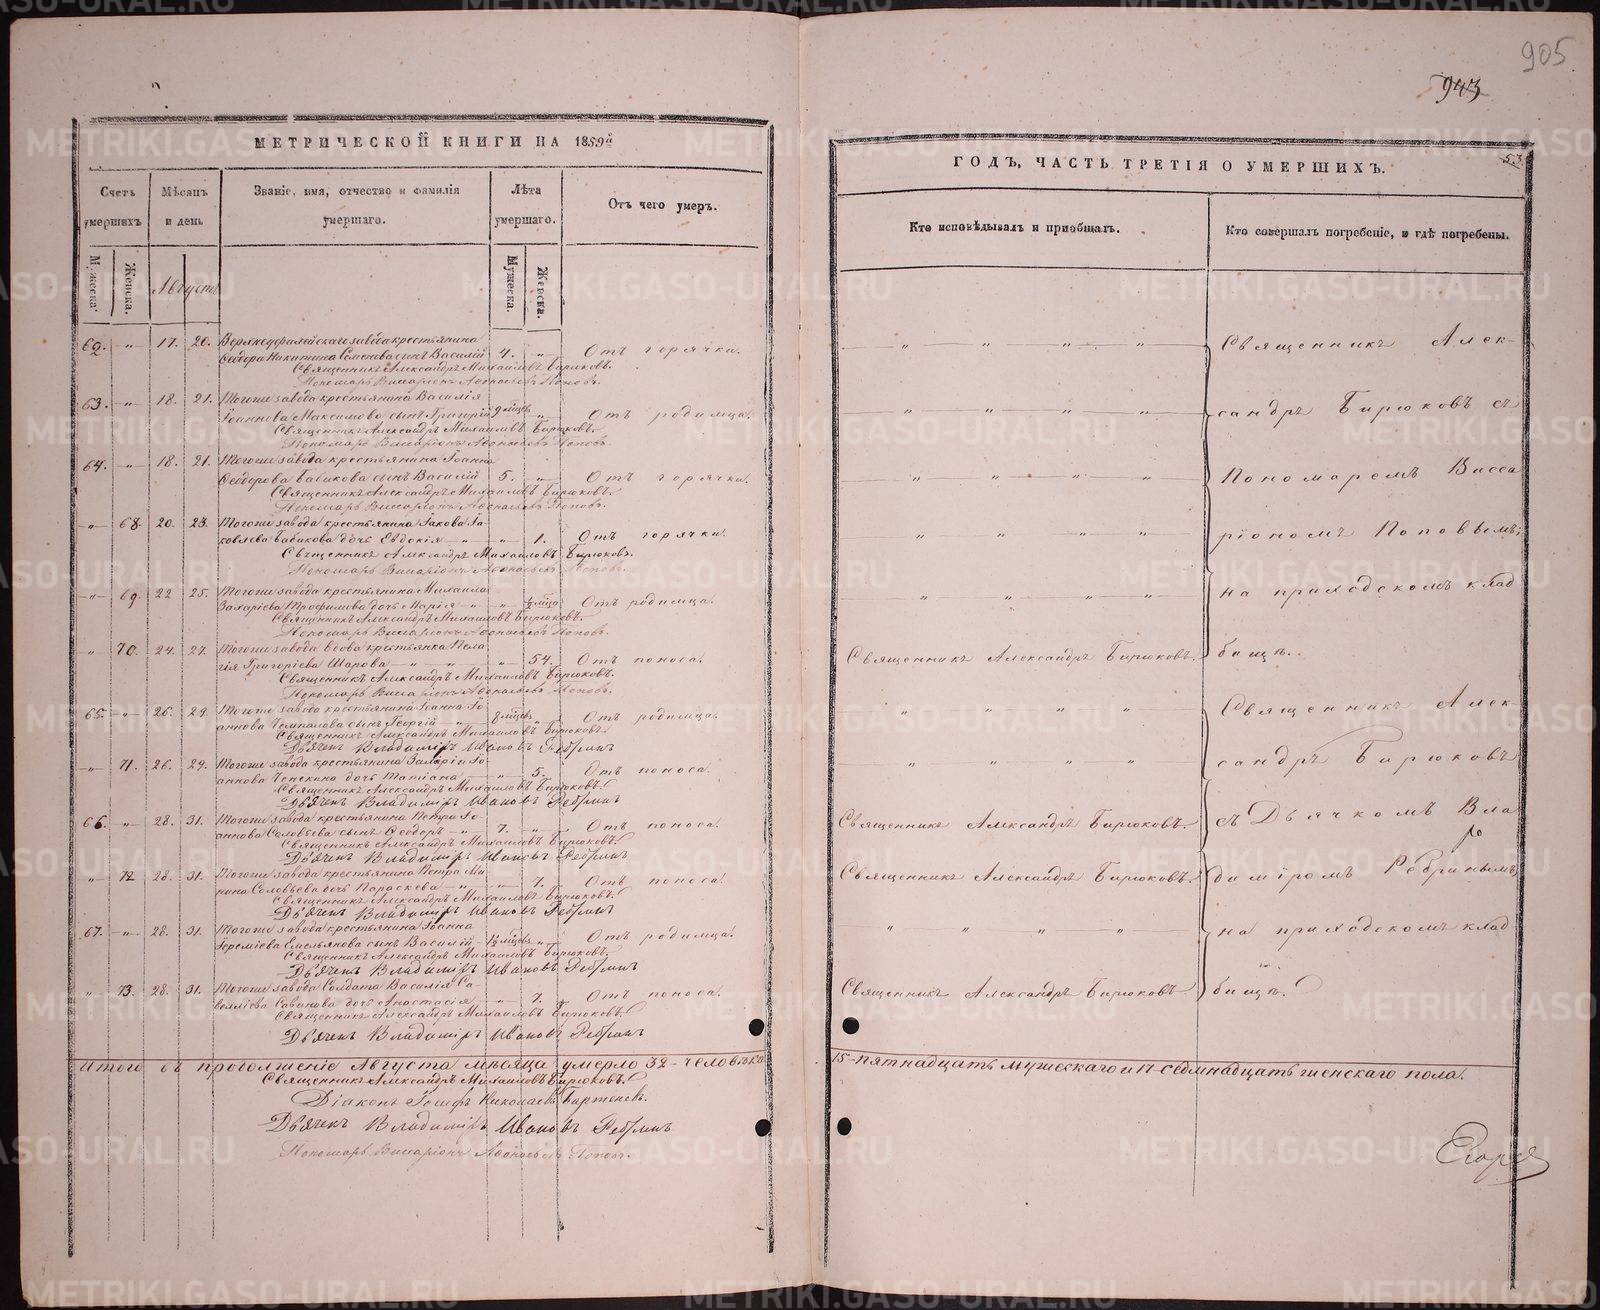 905
943
МЕТРИЧЕСКОЙ КНИГИ НА 1859й
Счетъ умершихъ
Мѣсяцъ и день
Званіе, имя, отчество и фамилія умершаго.
Лѣта умершаго.
Отъ чего умеръ.
Мужеска.
Женска.
Августъ
Мужеска.
Женска.
62. „ 17. 20. Верхнеуфалейскаго завода крестьянина
Ѳеодора Никитина Семенова сынъ Василій 4. „ Отъ горячки.
Священникъ Александръ Михаиловъ Бирюковъ.
Пономарь Виссаріонъ Аѳонасьевъ Поповъ.
63. „ 18. 21. Тогоже завода крестьянина Василія
Іоаннова Максимова сынъ Григорій 9 мѣсцъ „ Отъ родимца.
Священникъ Александръ Михаиловъ Бирюковъ.
Пономарь Виссаріонъ Аѳонасьевъ Поповъ.
64. „ 18. 21. Тогоже завода крестьянина Іоанна
Ѳеодорова Бабикова сынъ Василій 5. „ Отъ горячки.
Священникъ Александръ Михаиловъ Бирюковъ.
Пономарь Виссаріонъ Аѳонасьевъ Поповъ.
„ 68. 20. 23. Тогоже завода крестьянина Іакова Іа-
ковлева Бабикова дочь Евдокія „ 1. Отъ горячки.
Священникъ Александръ Михаиловъ Бирюковъ.
Пономарь Виссаріонъ Аѳонасьевъ Поповъ.
„ 69. 22 25. Тогоже завода крестьянина Михаила
Захаріева Трофимова дочь Марія „ ½ мѣца Отъ родимца.
Священникъ Александръ Михаиловъ Бирюковъ.
Пономарь Виссаріонъ Аѳонасьевъ Поповъ.
„ 70. 24. 27. Тогоже завода вдова крестьянка Пела
гія Григоріева Шарова „ „ „ 54. Отъ поноса.
Священникъ Александръ Михаиловъ Бирюковъ.
Пономарь Виссаріонъ Аѳонасьевъ Поповъ.
65. „ 26. 29. Тогоже завода крестьянина Іоанна Іо-
аннова сынъ Георгій „ 8 мѣсцъ „ Отъ родимца.
Священникъ Александръ Михаиловъ Бирюковъ.
Дьячекъ Владимїръ Ивановъ Ребринъ
„ 71. 26. 29. Тогоже завода крестьянина Іо-
аннова дочь Татіана „ 5. Отъ поноса.
Священникъ Александръ Михаиловъ Бирюковъ.
Дьячекъ Владимїръ Ивановъ Ребринъ
66. „ 28. 31. Тогоже завода крестьянина Петра Іо-
аннова Соловьева сынъ Ѳеодоръ „ 7. „ Отъ поноса.
Священникъ Александръ Михаиловъ Бирюковъ.
Дьячекъ Владимїръ Ивановъ Ребринъ
„ 72 28. 31. Тогоже завода крестьянина Петра Ми-
нина Соловьева дочь Параскева „ „ 7. Отъ поноса.
Священникъ Александръ Михаиловъ Бирюковъ.
Дьячекъ Владимїръ Ивановъ Ребринъ
67. „ 28. 31. Тогоже завода крестьянина Іоанна
Іереміева Емельянова сынъ Василій 1½ мѣсцъ „ Отъ родимца.
Священникъ Александръ Михаиловъ Бирюковъ.
Дьячекъ Владимїръ Ивановъ Ребринъ
„ 73. 28. 31. Тогоже завода Солдата Василія Са-
веліева дочь Анастасія „ 7. Отъ поноса.
Священникъ Александръ Михаиловъ Бирюковъ.
Дьячекъ Владимїръ Ивановъ Ребринъ
Итого въ продолженіе Августа мѣсяца умерло 32 человѣка
Священникъ Александръ Михаиловъ Бирюковъ.
Діаконъ Іосифъ Николаевъ
Дьячекъ Владимїръ Ивановъ Ребринъ
Пономарь Виссаріонъ Аѳонасьевъ Поповъ.
53.
ГОДЪ, ЧАСТЬ ТРЕТІЯ О УМЕРШИХЪ.
Кто исповѣдывалъ и пріобщалъ.
Кто совершалъ погребеніе, и гдѣ погребены.
„ „ „ „ Священникъ Алек-
„ „ „ „ сандръ Бирюковъ съ
„ „ „ „ Пономаремъ Висса
„ „ „ „ ріономъ Поповымъ,
„ „ „ „ на приходскомъ клад
Священникъ Александръ Бирюковъ. бищѣ.
„ „ „ „ Священникъ Алек-
„ „ „ „ сандръ Бирюковъ
Священникъ Александръ Бирюковъ. съ Дьячкомъ Вла
Священникъ Александръ Бирюковъ. диміромъ Ребринымъ,
„ „ „ „ на приходскомъ клад
Священникъ Александръ Бирюковъ бищѣ.
15-пятнадцать мужескаго и 17-седмнадцать женскаго пола.
METRIKI.GASO-URAL.RU